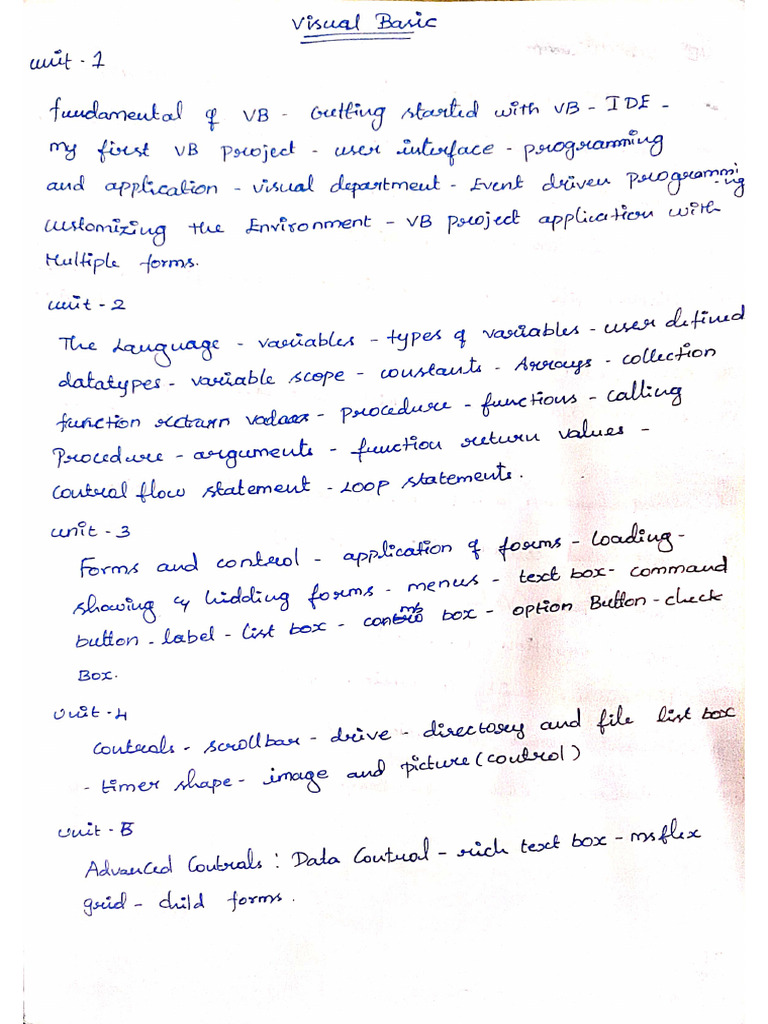 Visual Basic
unit - 1
fundamental of VB - Getting started with VB - IDE -
my first VB project - user interface - programming
and application - visual department - Event driven programming
customizing the Environment - VB project application with
Multiple forms.
unit - 2
The Language - variables - types of variables - user defined
datatypes - variable scope - constants - Arrays - collection
function return - procedure - functions - calling
Procedure - arguments - function return values -
Control flow statement - Loop statements.
unit - 3
Forms and control - application of forms - Loading -
showing & hidding forms - menus - text box - command
button - Label - list box - box - option Button - check
Box.
unit - 4
controls - scrollbar - drive - directory and file list box
- timer shape - image and picture (control)
unit - 5
Advanced Controls : Data Control - rich text box - msflex
grid - child forms.